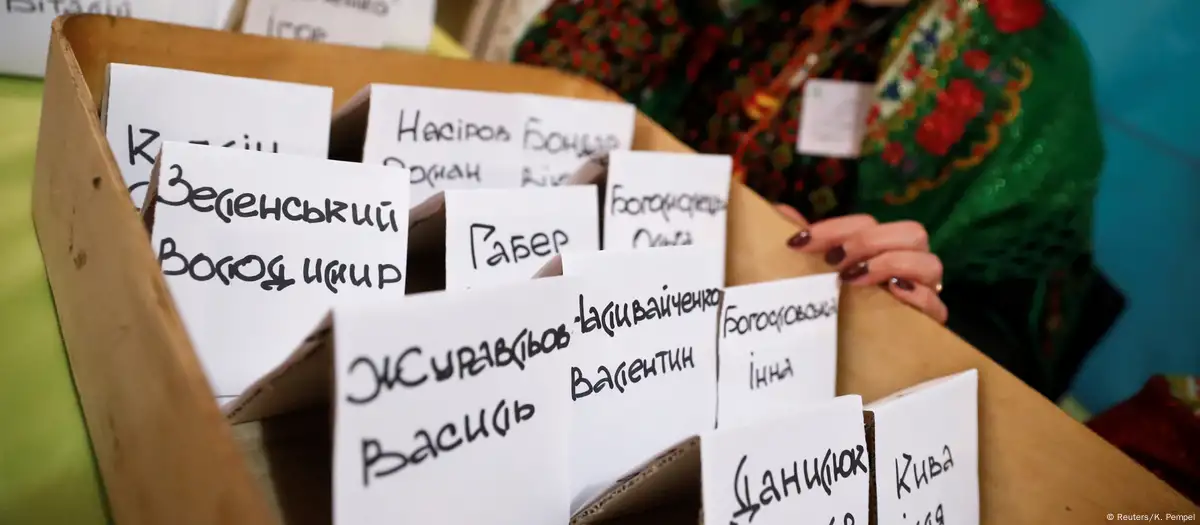 Віталій
Ігор
Насіров
Роман
Бондар
Зеленський
Володимир
Габер
Богомолець
Ольга
Журавльов
Василь
Наливайченко
Валентин
Богословська
Інна
Данилюк
Кива
Ілля
© Reuters/K. Pempel